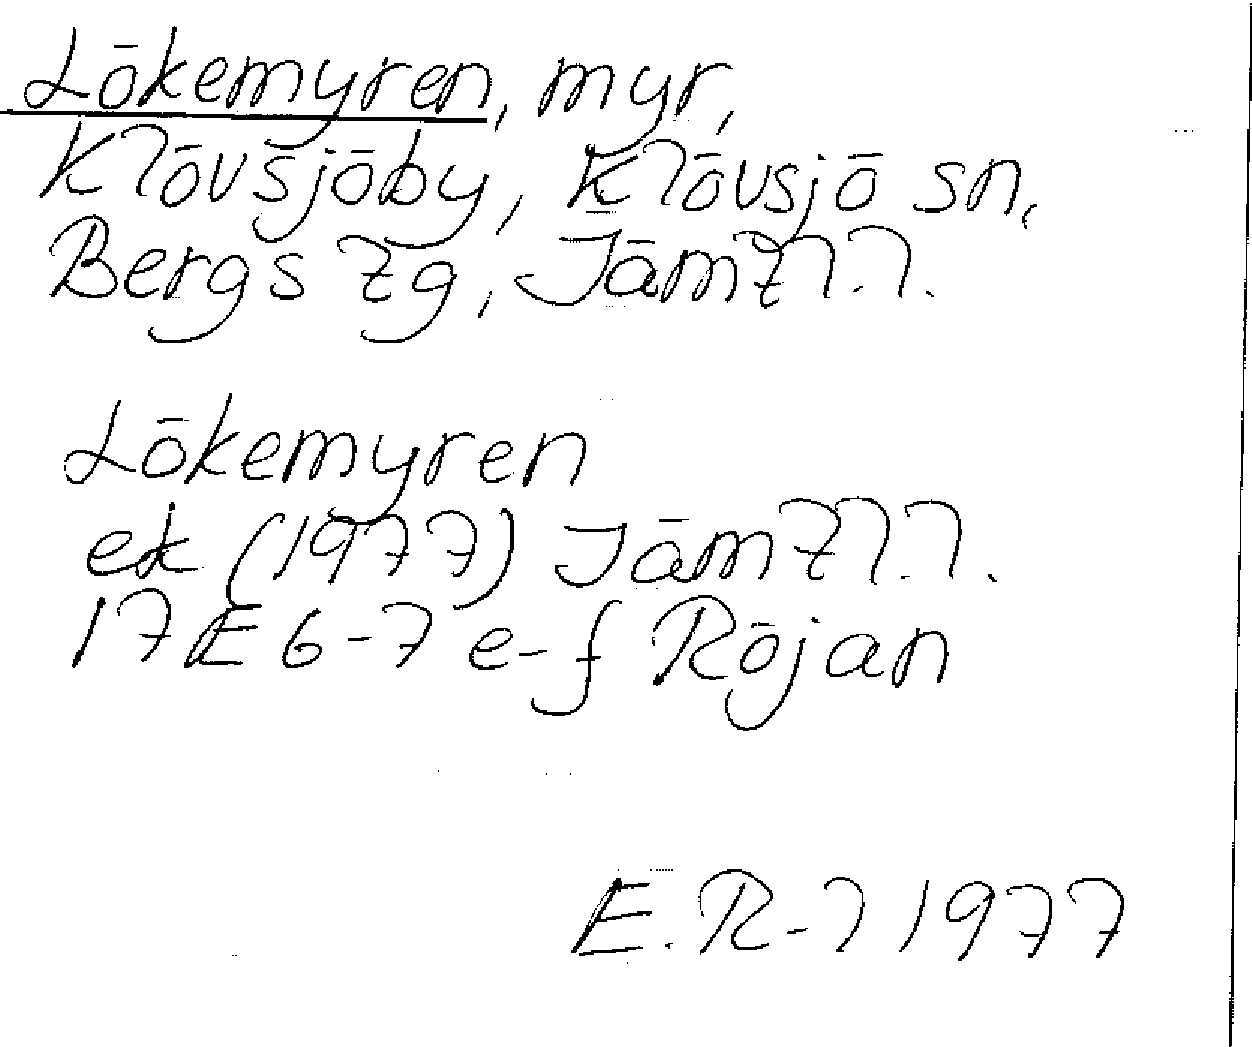 Lökemyren, myr,
Klövsjöby, Klövsjö sn,
Bergs tg, Jämtl.l.
Lökemyren
ek (1977) Jämtl.l.
17E 6-7 e-f Röjan
E. R-l 1977